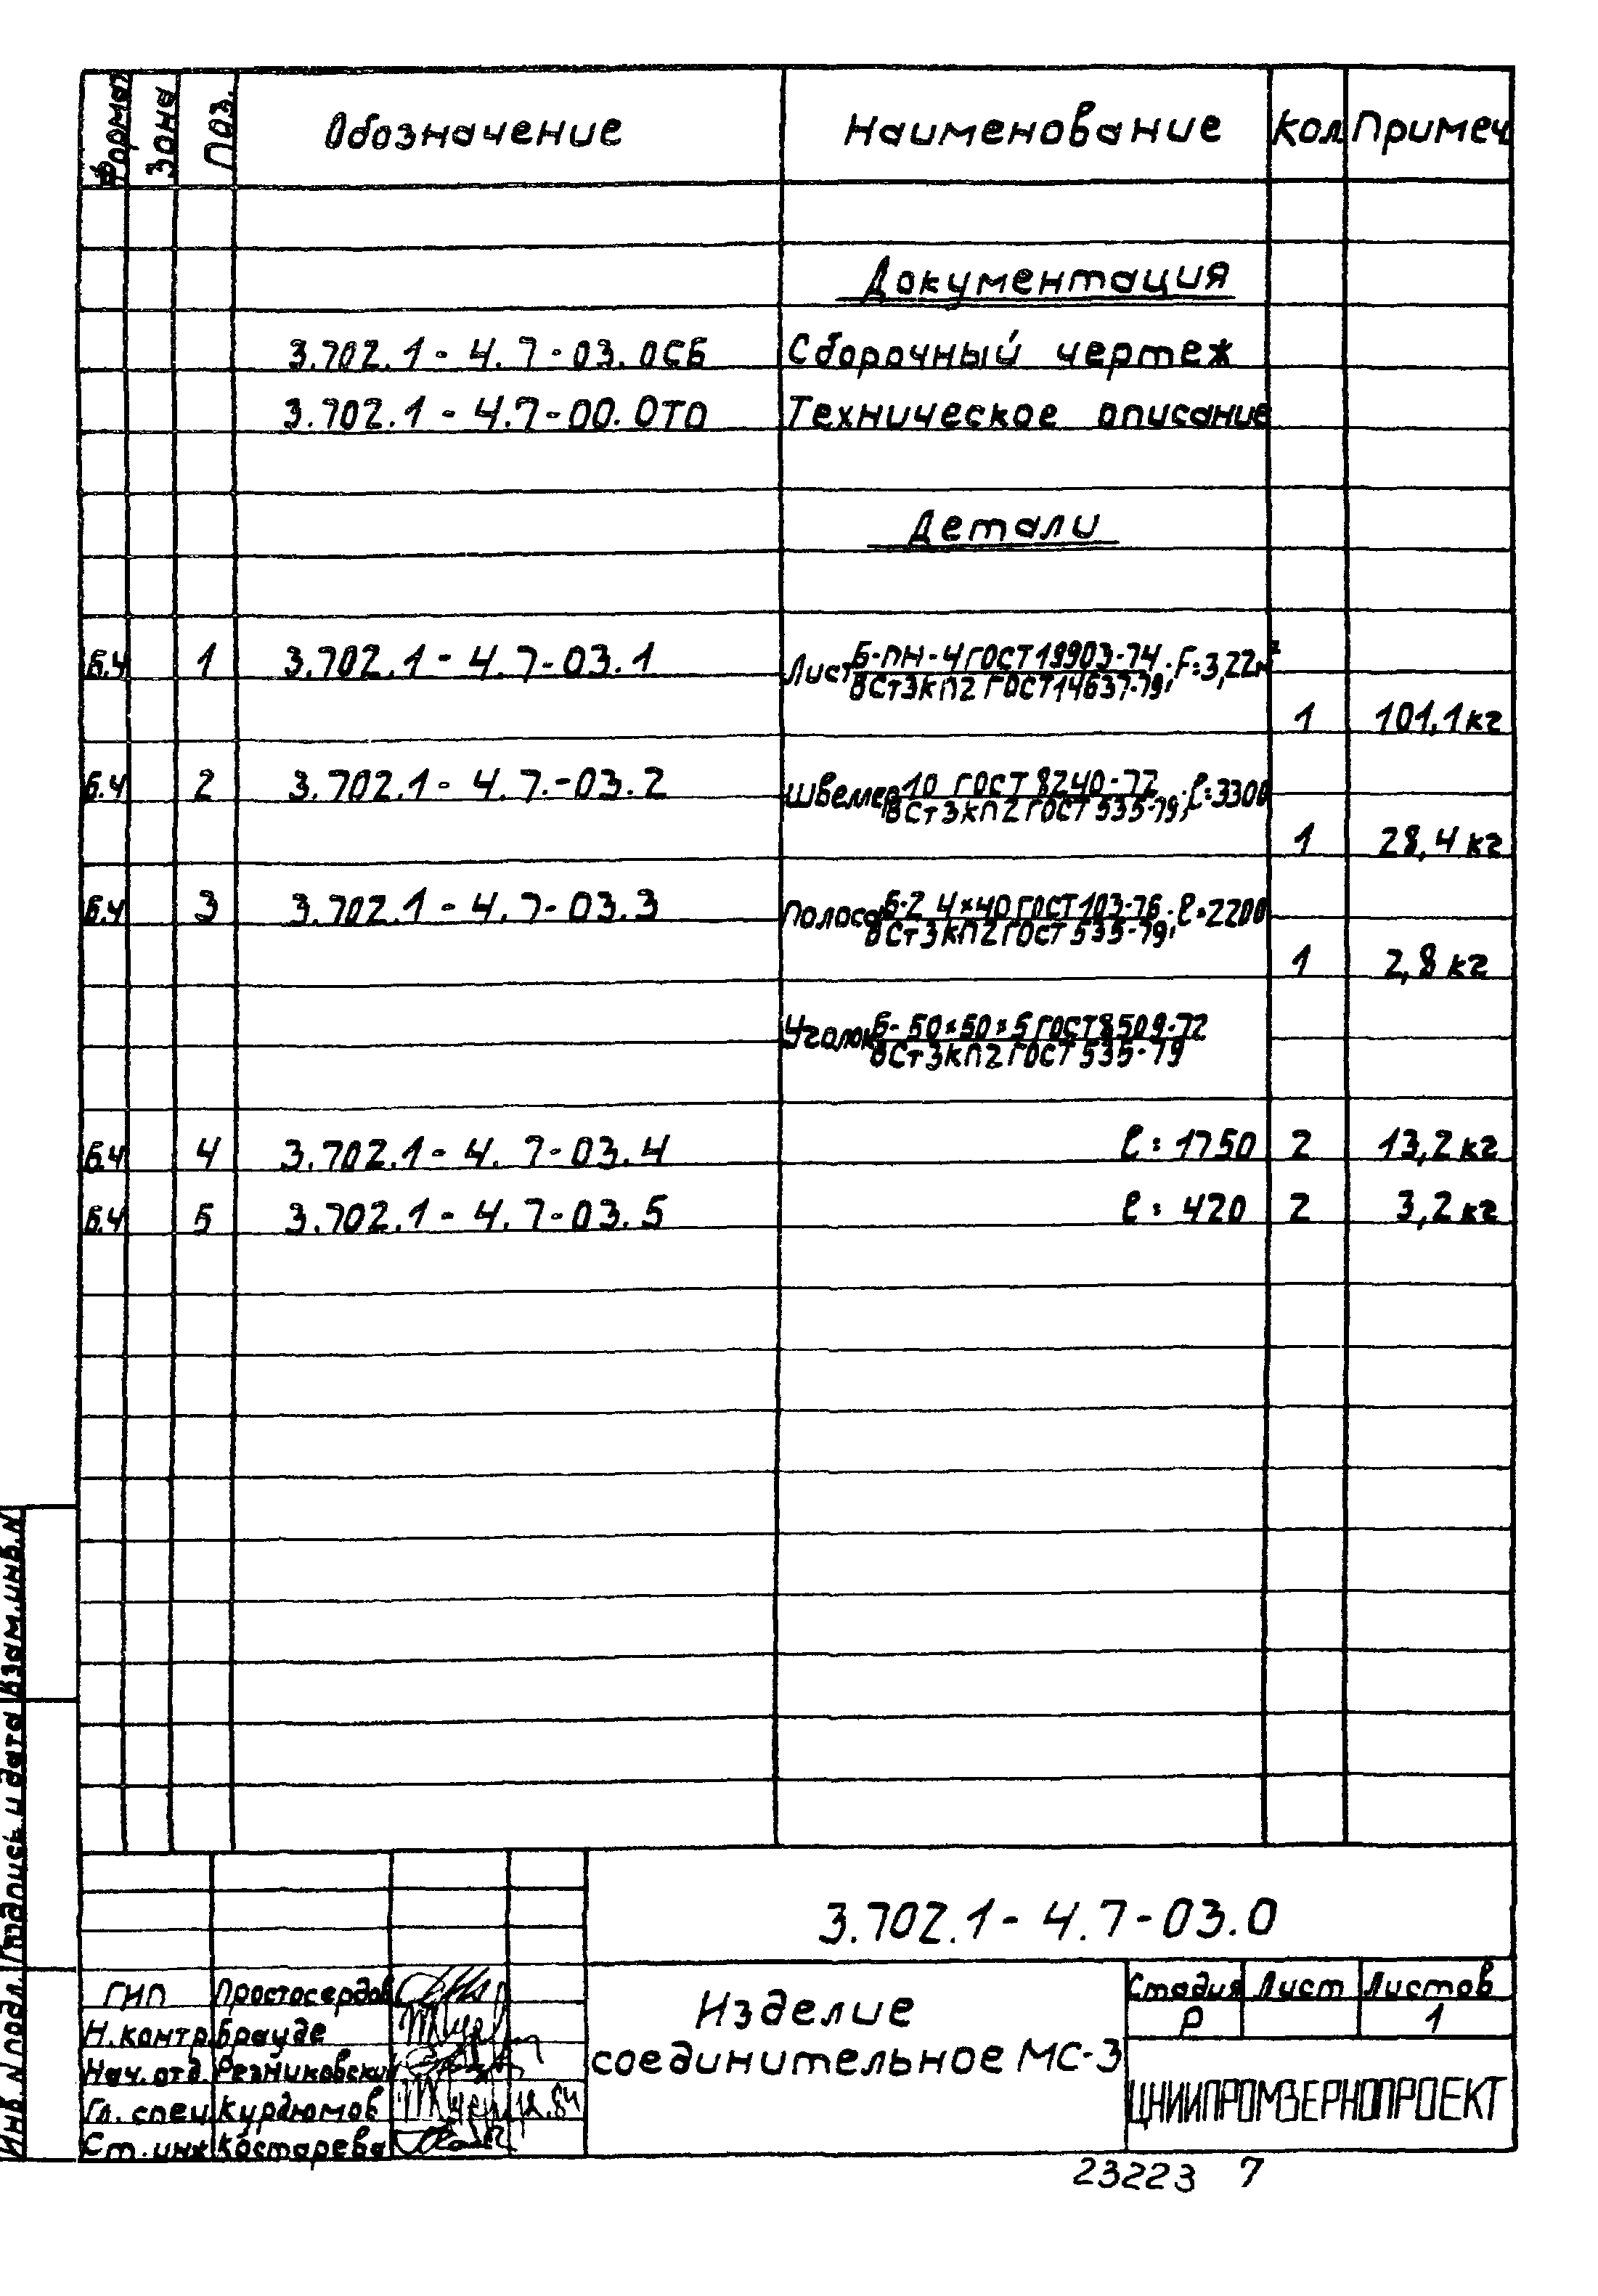 Формат Зона Поз. Обозначение Наименование Кол. Примеч.
Документация
3.702.1 - 4.7 - 03.0СБ Сборочный чертеж
3.702.1 - 4.7 - 00.0ТО Техническое описание
Детали
Б.Ч 1 3.702.1 - 4.7 - 03.1 Лист Б-ПН-4 ГОСТ 19903-74 ; F=3,22м²
ВСт3кп2 ГОСТ 14637-79
1 101,1 кг
Б.Ч 2 3.702.1 - 4.7.-03.2 Швеллер 10 ГОСТ 8240-72 ; ℓ=3300
ВСт3кп2 ГОСТ 535-79
1 28,4 кг
Б.Ч 3 3.702.1 - 4.7 - 03.3 Полоса Б-2 4×40 ГОСТ 103-76 ; ℓ=2200
ВСт3кп2 ГОСТ 535-79
1 2,8 кг
Уголок Б- 50×50×5 ГОСТ 8509-72
ВСт3кп2 ГОСТ 535-79
Б.Ч 4 3.702.1 - 4.7 - 03.4 ℓ = 1750 2 13,2 кг
Б.Ч 5 3.702.1 - 4.7 - 03.5 ℓ = 420 2 3,2 кг
Взам.инв.N
Подпись и дата
Инв.N подл.
3.702.1 - 4.7 - 03.0
ГИП Простосердов
Н.контр. Брауде
Нач.отд. Резниковский
Гл. спец. Курдюмов 12.84
Ст.инж. Костарева
Изделие
соединительное МС-3
Стадия Лист Листов
Р 1
ЦНИИПРОМЗЕРНОПРОЕКТ
23223 7